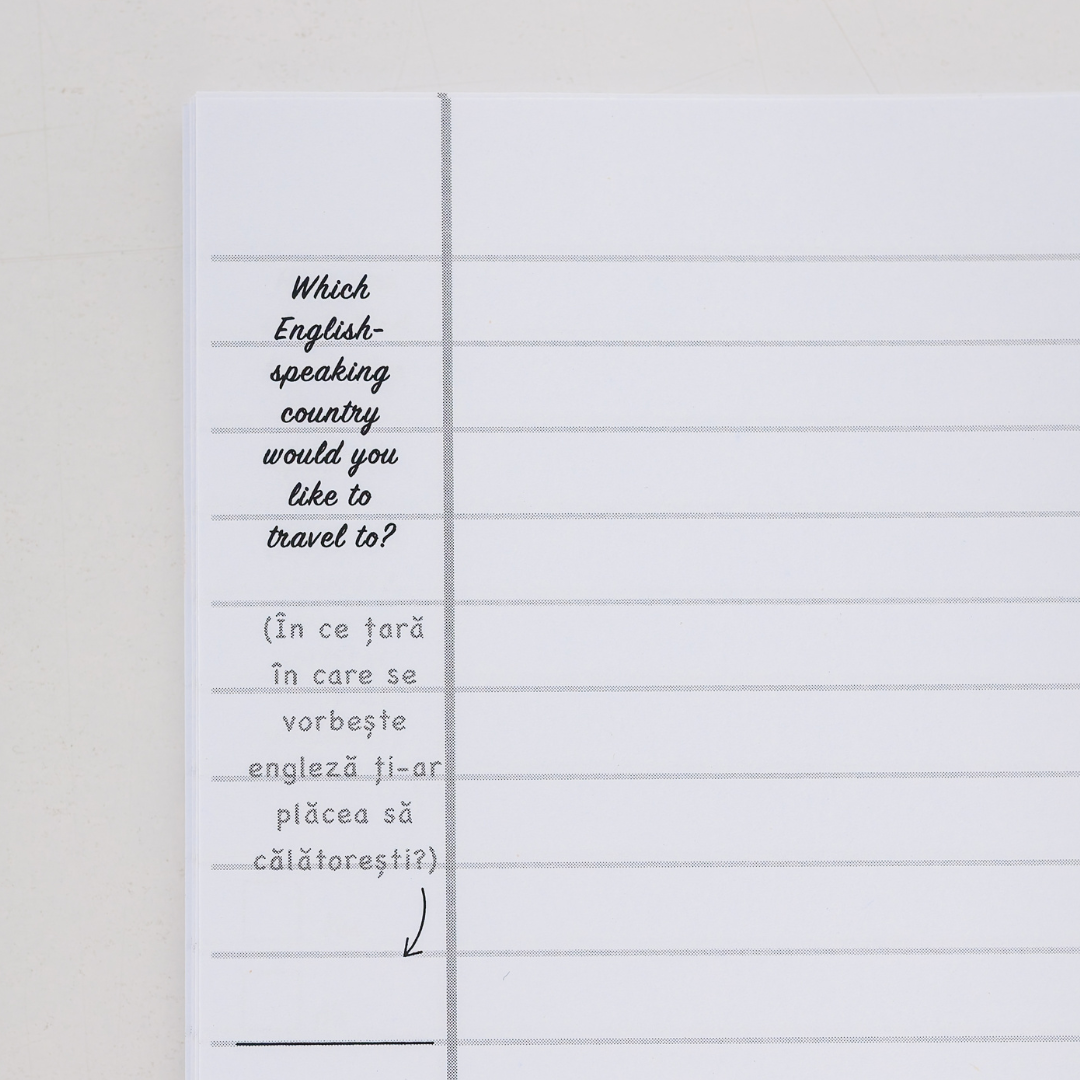 Which
English-
speaking
country
would you
like to
travel to?
(În ce țară
în care se
vorbește
engleză ți-ar
plăcea să
călătorești?)